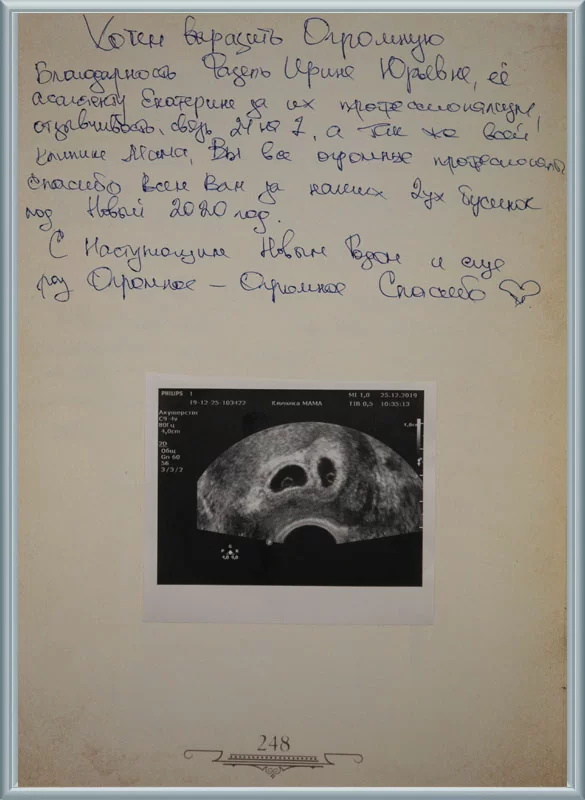 Хотем выразить Огромную
Благодарность Фацепь Ирине Юрьевне, её
ассистенту Екатерине за их профессионализм,
отзывчивость, связь 24 на 7, а так же всей
клинике Мама, Вы все огромные профессионалы
Спасибо Всем Вам за наших 2ух бусинок
под Новый 2020 год.
С Наступающим Новым Годом и еще
раз Огромное – Огромное Спасибо
PHILIPS
19-12-25-103422 Клиника МАМА MI 1,0 25.12.2019
TIB 0,5 10:35:13
Акушерство
C9-4v
80Гц
4,0cm
2D
Общ
Gn 60
56
3/3/2
4,0cm
248